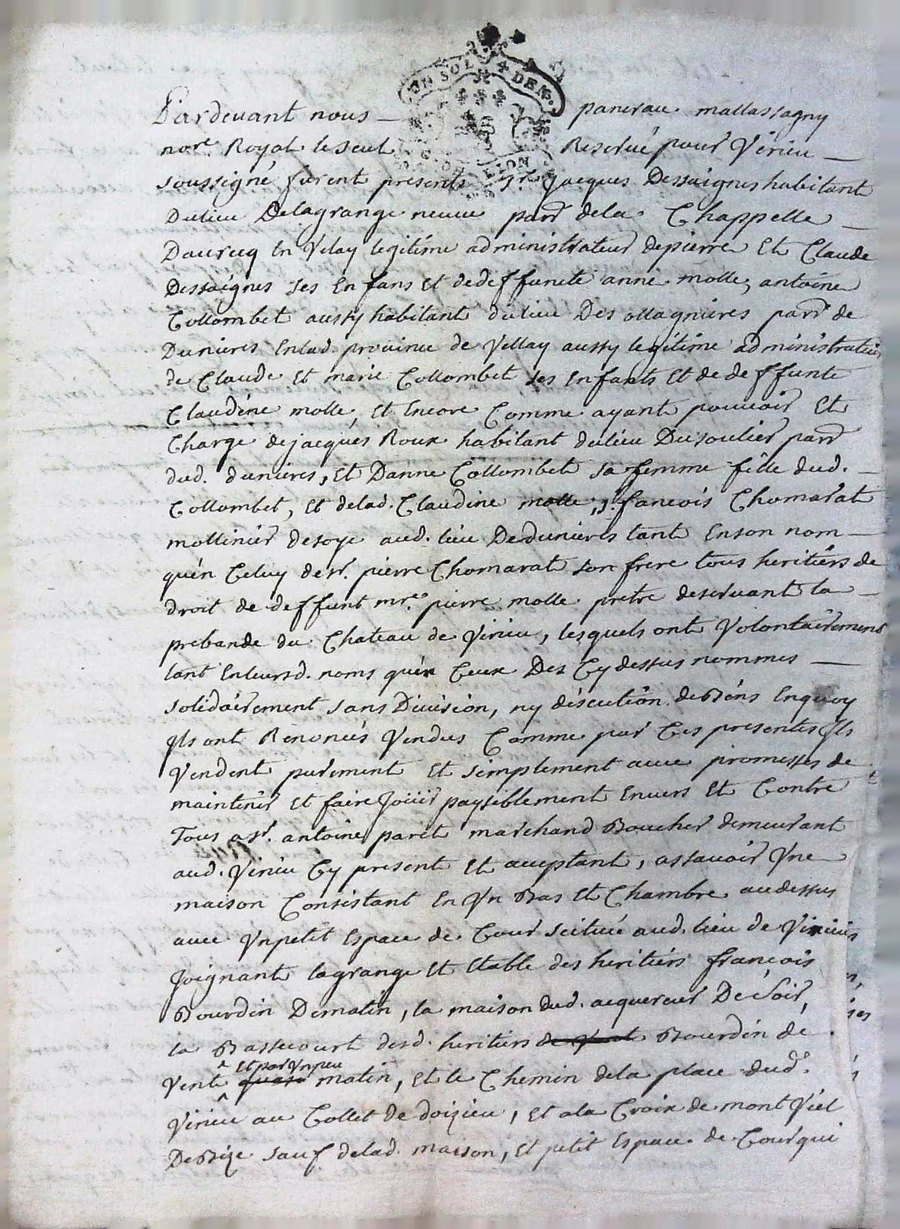 UN SOL 4 DEN.
Pardevant nous — pancrau mallassagny
nore. Royal le seul Reservé pour Virieu —
soussigné furent presents sr. Jacques Dessaignes habitant
Dulieu Delagrange neuve parr dela Chappelle
Daurecq en Velay legitime administrateur de pierre Et Claude
Dessaignes ses Enfans Et dedeffuncte anne molle, antoine
Collombet aussy habitant dulieu Des ollagnieres parr de
Dunieres Enlad. province de Vellay aussy legitime administrateur
de Claude Et marie Collombet ses Enfants Et de deffunte
Claudine molle, Et Encore Comme ayant pouvoir Et
Charge de jacques Roux habitant dulieu Dusoulier parr
dud. dunieres, Et Danne Collombet sa femme fille dud. —
Collombet, Et delad. Claudine molle, sr. francois Chomarat
mollinier desoye aud. lieu Dedunieres tant Enson nom —
quén Celuy de sr. pierre Chomarat son frere tous heritiers de
droit de deffunt mre. pierre molle pretre deservant la —
prebande du Chateau de Virieu, lesquels ont Volontairement
tant Enleursd. noms quén Ceux Des Cy dessus nommes —
solidairement sans Division, ny discution debiens Enquoy
Ils ont Renoncés Vendus Comme par Ces presentes Ils
Vendent purement Et simplement avec promesses de
maintenir Et faire Joüir paysiblement Envers Et Contre
Tous asr. antoine paret marchand Boucher demeurant
aud. Virieu Cy present Et acceptant, assavoir Une
maison Consistant En Un Bas Et Chambre audessus
avec Unpetit Espace de Cour scituée aud. lieu de Virieu
Joignant lagrange Et Etable des heritiers francois
Bourdin Dematin, la maison dud. acquereur De soir,
la Bassecourt desd. heritiers Bourdin de
Et parUnpeu
Vent quasi matin, Et le Chemin dela place dud.
Virieu au Collet de doizieu, Et ala Croix de mont Viel
DeBize sauf delad. maison, Et petit Espace de Courqui